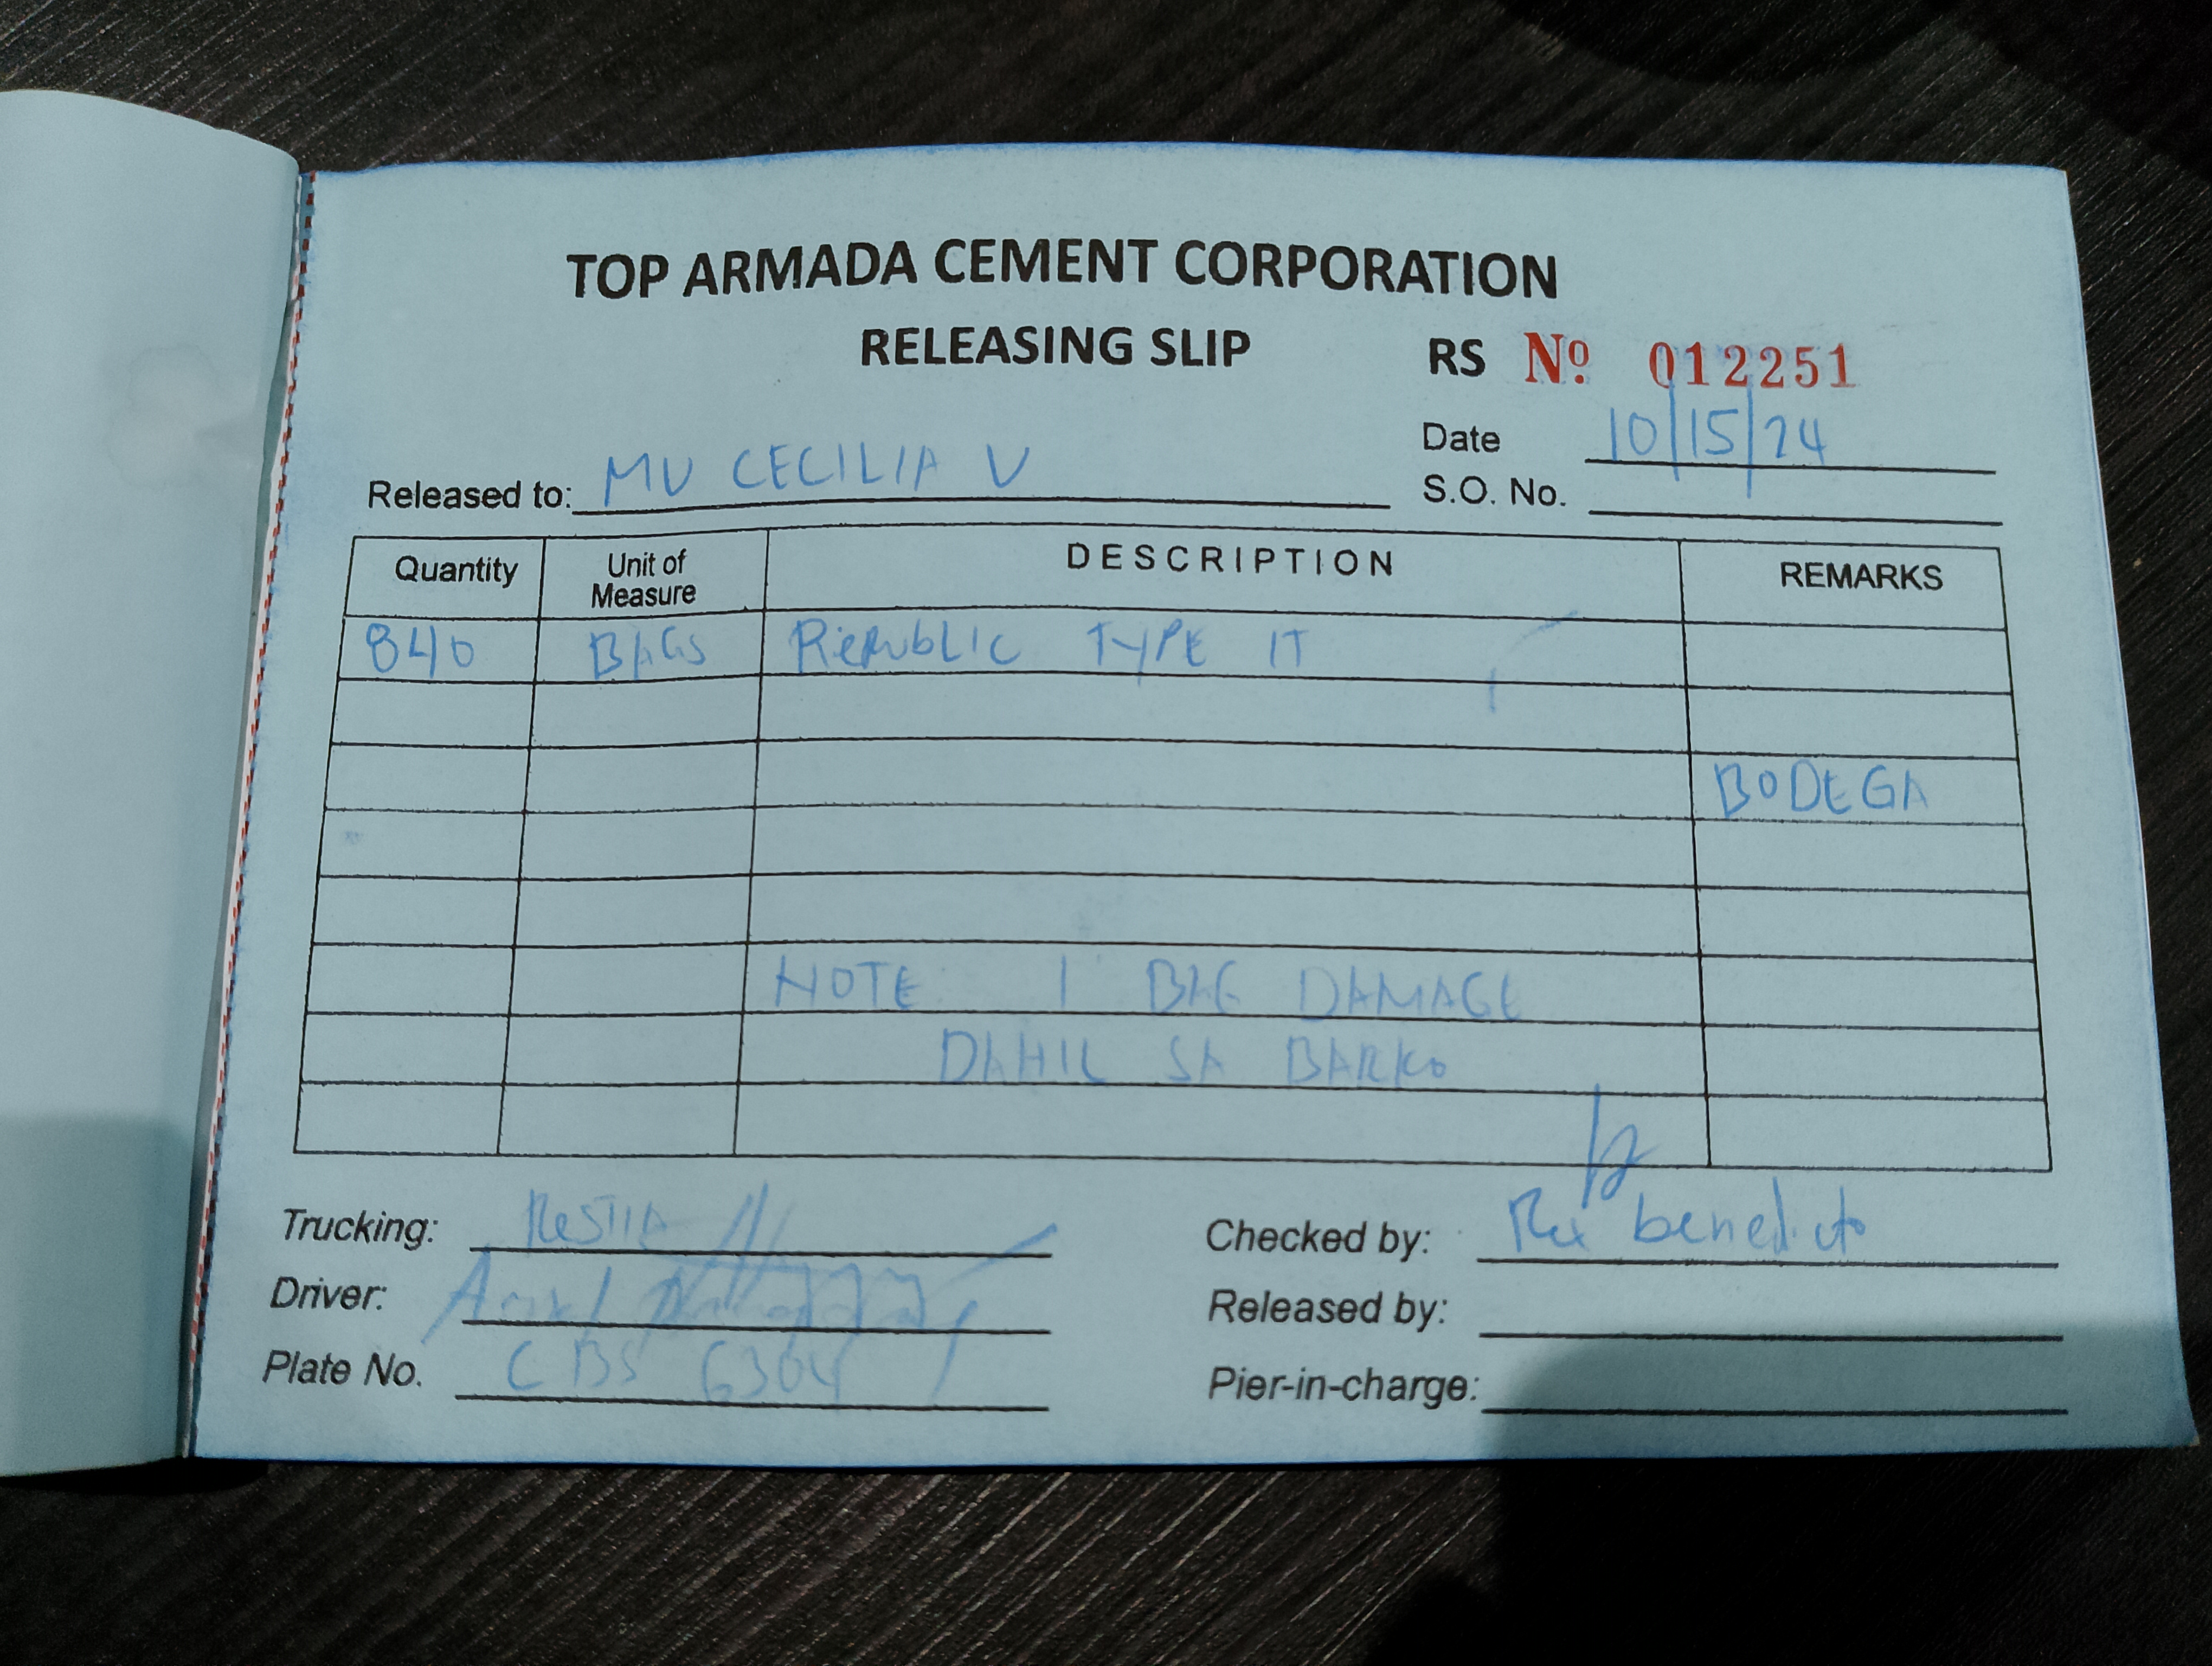 TOP ARMADA CEMENT CORPORATION
RELEASING SLIP
RS Nº 012251
Date 10/15/24
Released to: MV CECILIA V
S.O. No.
Quantity Unit of Measure DESCRIPTION REMARKS
840 BAGS REPUBLIC TYPE IT
BODEGA
NOTE 1 BAG DAMAGE
DAHIL SA BARKO
Trucking:
Checked by: Rex benedicto
Driver:
Released by:
Plate No. CBS 6304
Pier-in-charge: